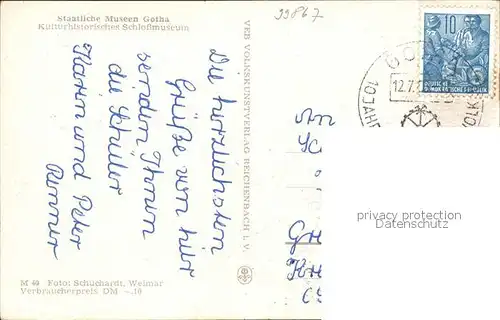 Staatliche Museen Gotha
Kulturhistorisches Schloßmuseum
33867
Die herzlichsten
Grüße von hier
senden Ihnen
die Schüler
Karin und Peter
Renner
VEB VOLKSKUNSTVERLAG REICHENBACH i. V.
M 40 Foto: Schuchardt, Weimar
Verbraucherpreis DM -.10
10
12.7.
10 JAH
VOLK
An
Gr
Kr
privacy protection
Datenschutz